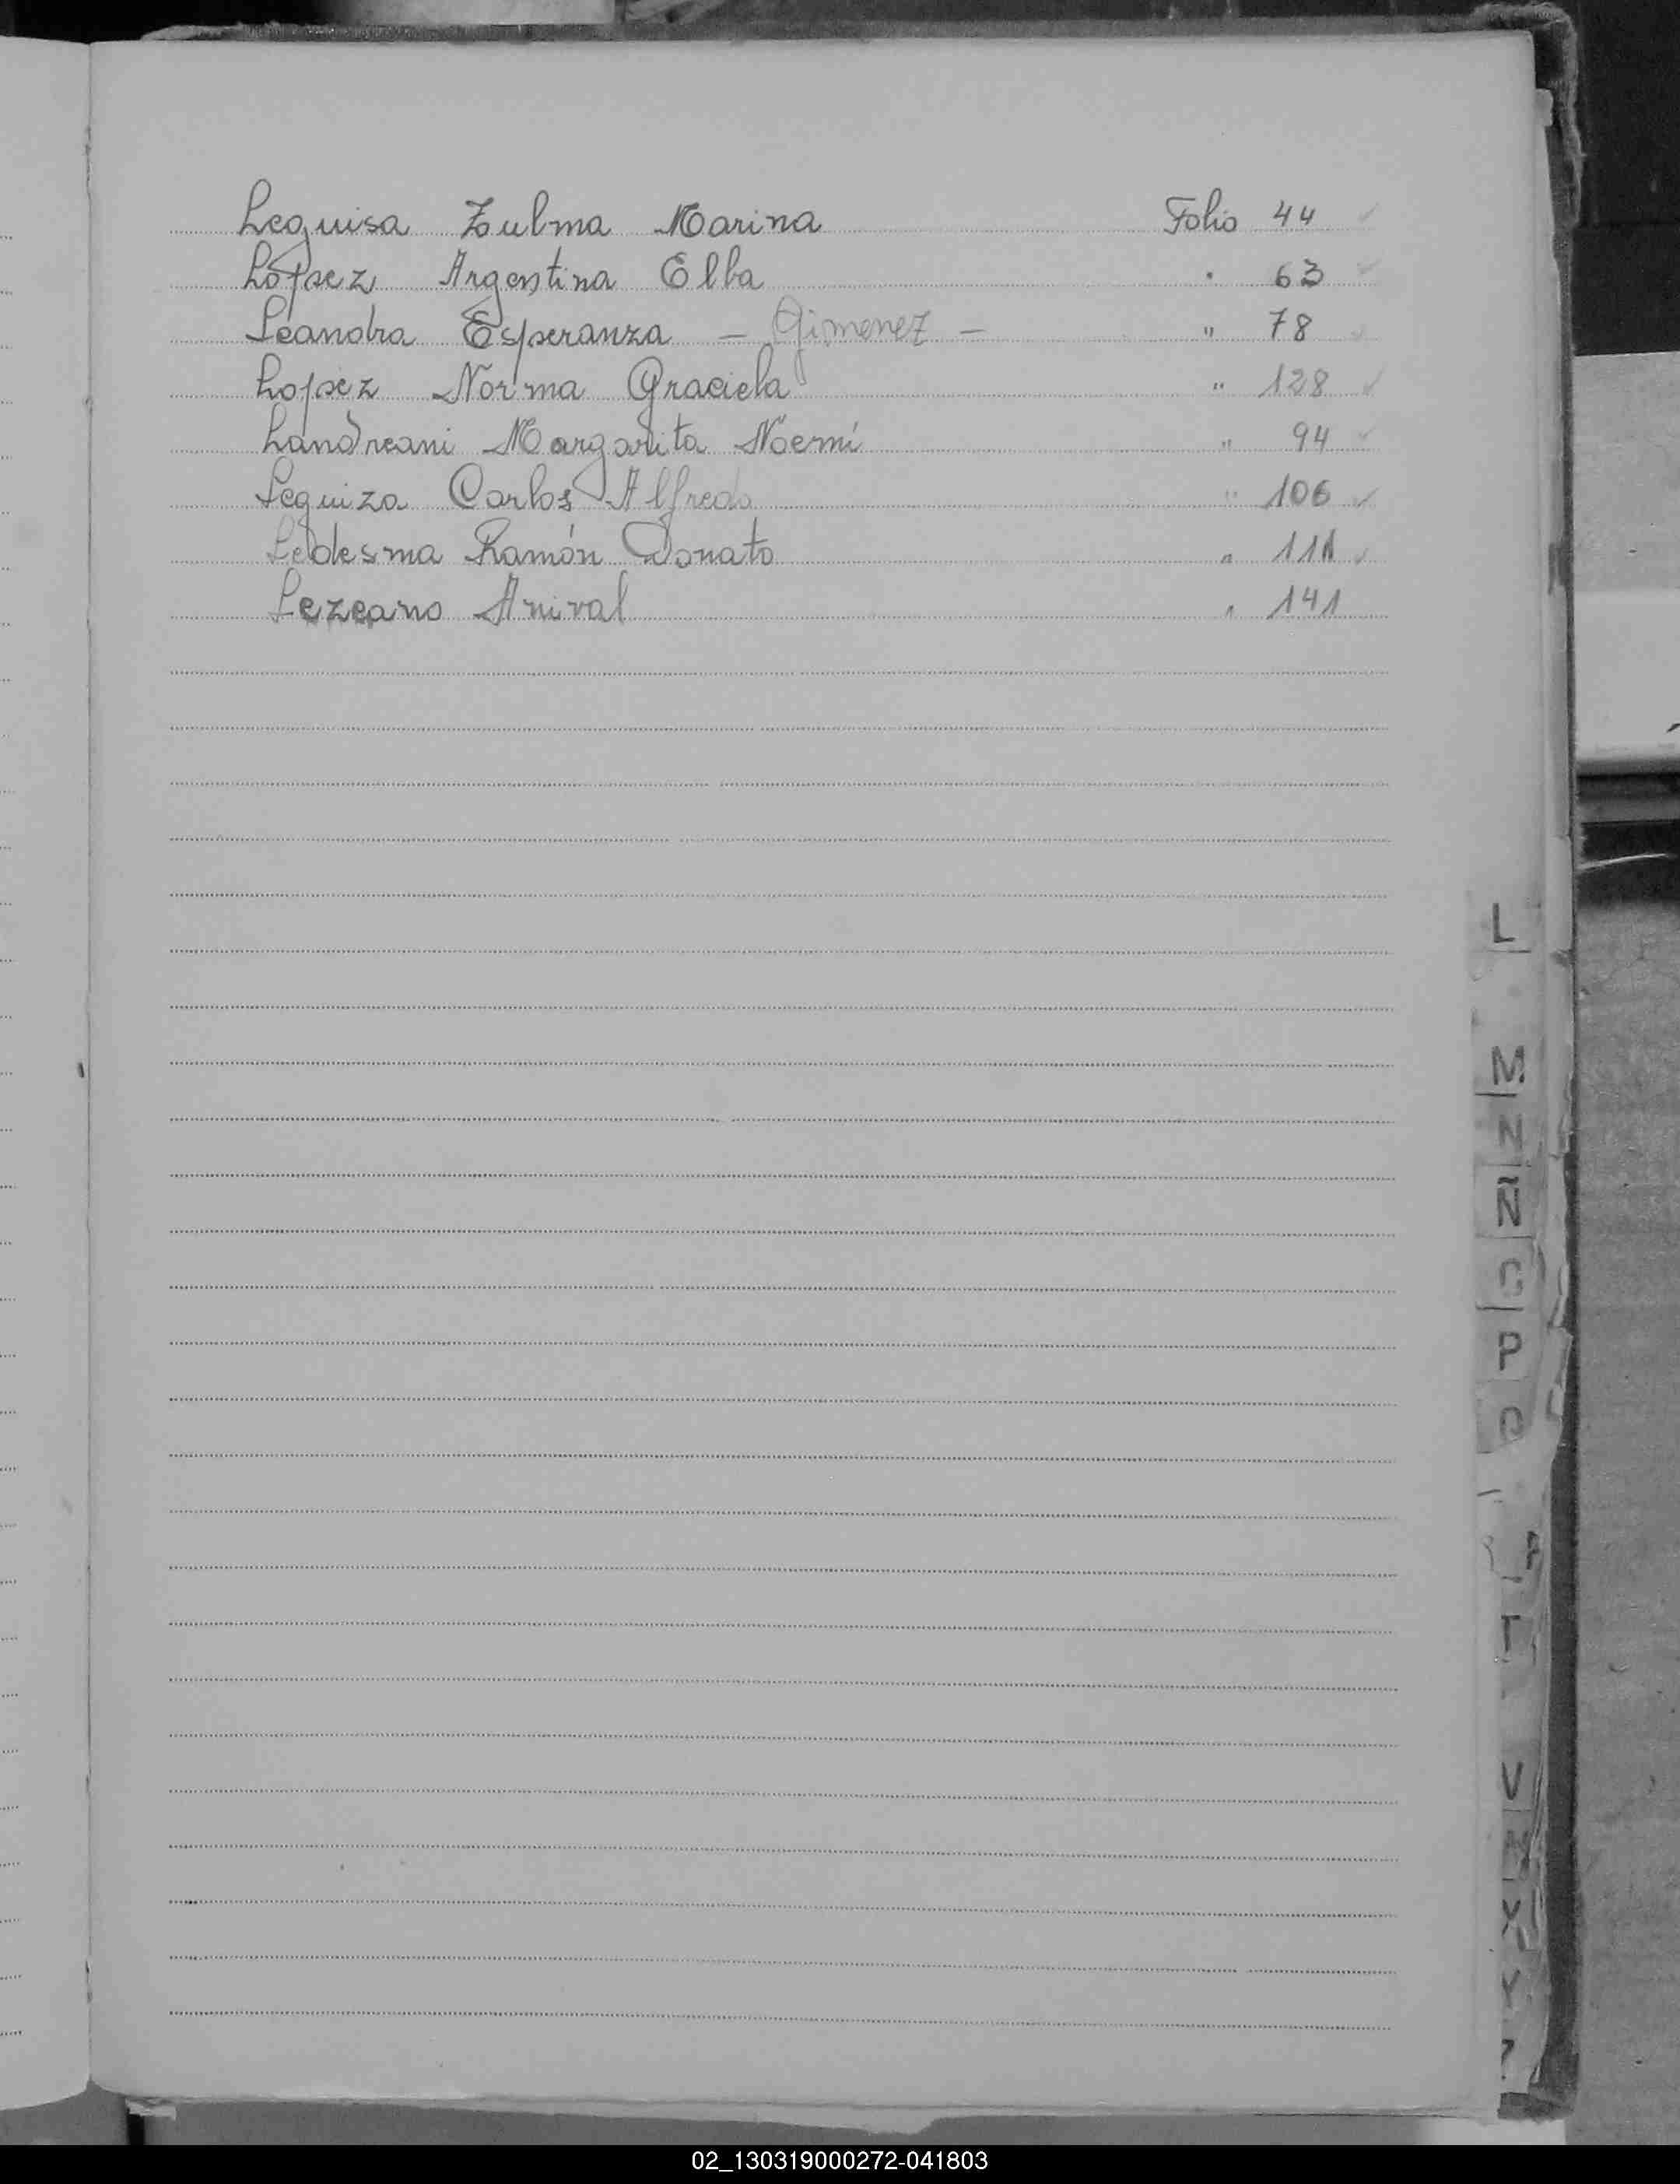 Leguisa Zulma Marina Folio 44 ✓
López Argentina Elba " 63 ✓
Leandra Esperanza - Gimenez - " 78 ✓
Lopez Norma Graciela " 128 ✓
Landreani Margarita Noemí " 94 ✓
Leguiza Carlos Alfredo " 106 ✓
Ledesma Ramón Donato " 111 ✓
Lezcano Anival " 141
L
M
N
Ñ
O
P
Q
T
V
X
Y
Z
02_130319000272-041803